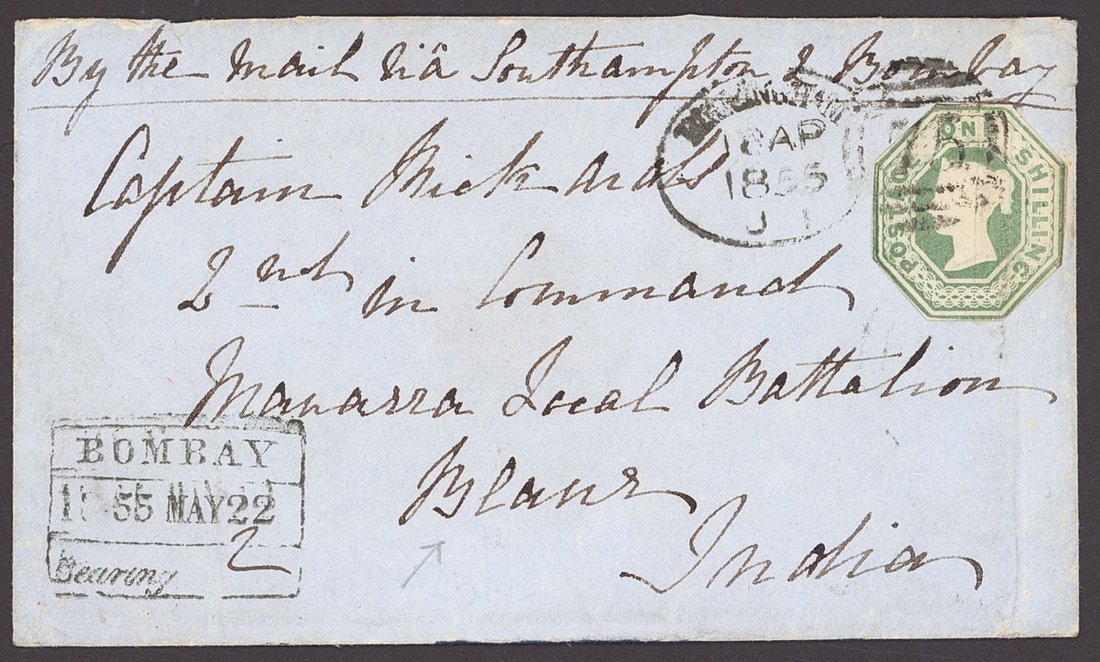 By the Mail viâ Southampton & Bombay
18 AP
1855
J 1
POSTAGE ONE SHILLING
Captain Rickards
2nd in Command
Local Battalion
India
BOMBAY
1855 MAY 22
Bearing 2